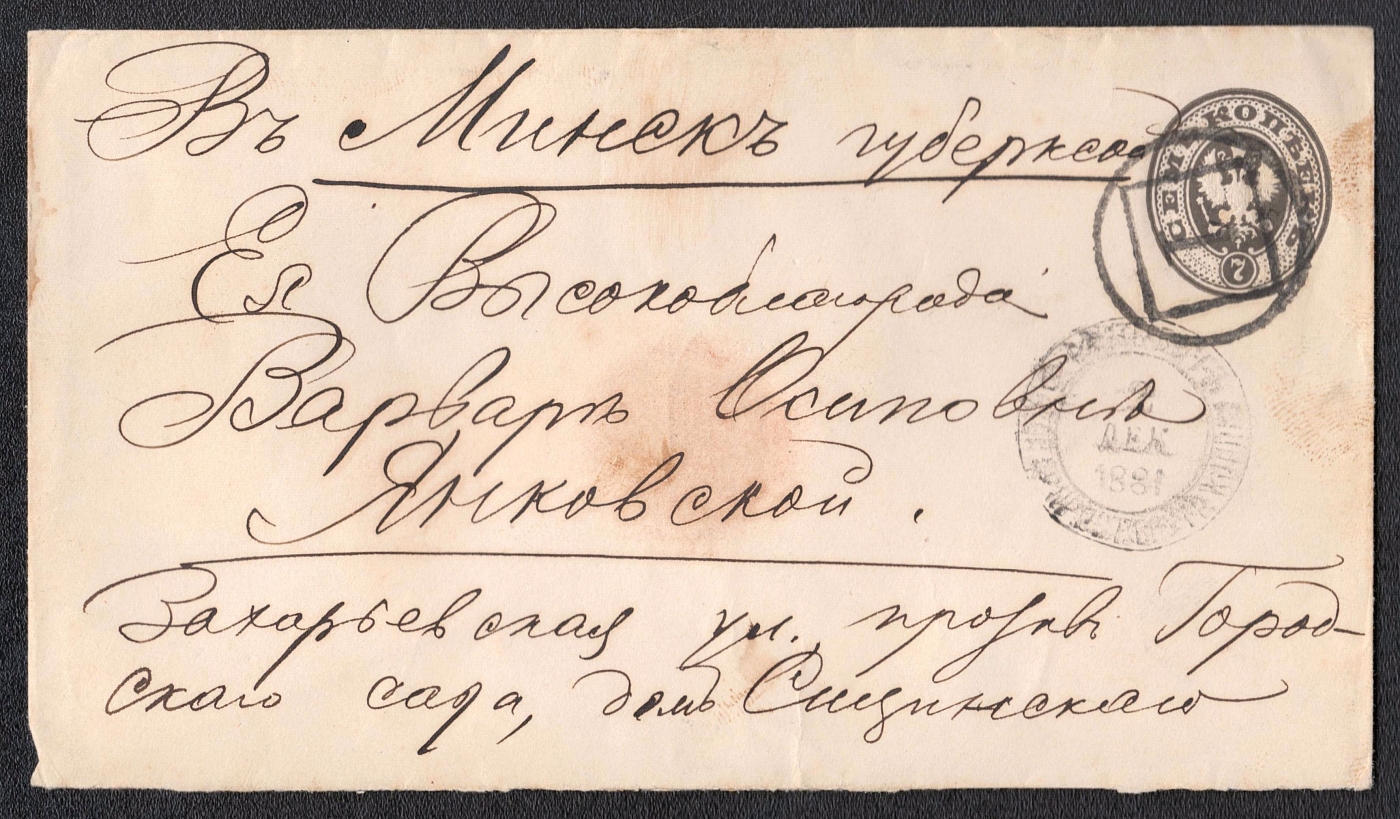 Въ Минскъ губернской
Ея Высокоблагородію
Варварѣ Осиповнѣ
Янковской.
Захарьевская ул. противъ Город-
скаго сада, домъ
СЕМЬ КОПѢЕКЪ
7
ДЕК
1881